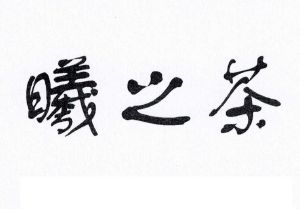 曦之茶